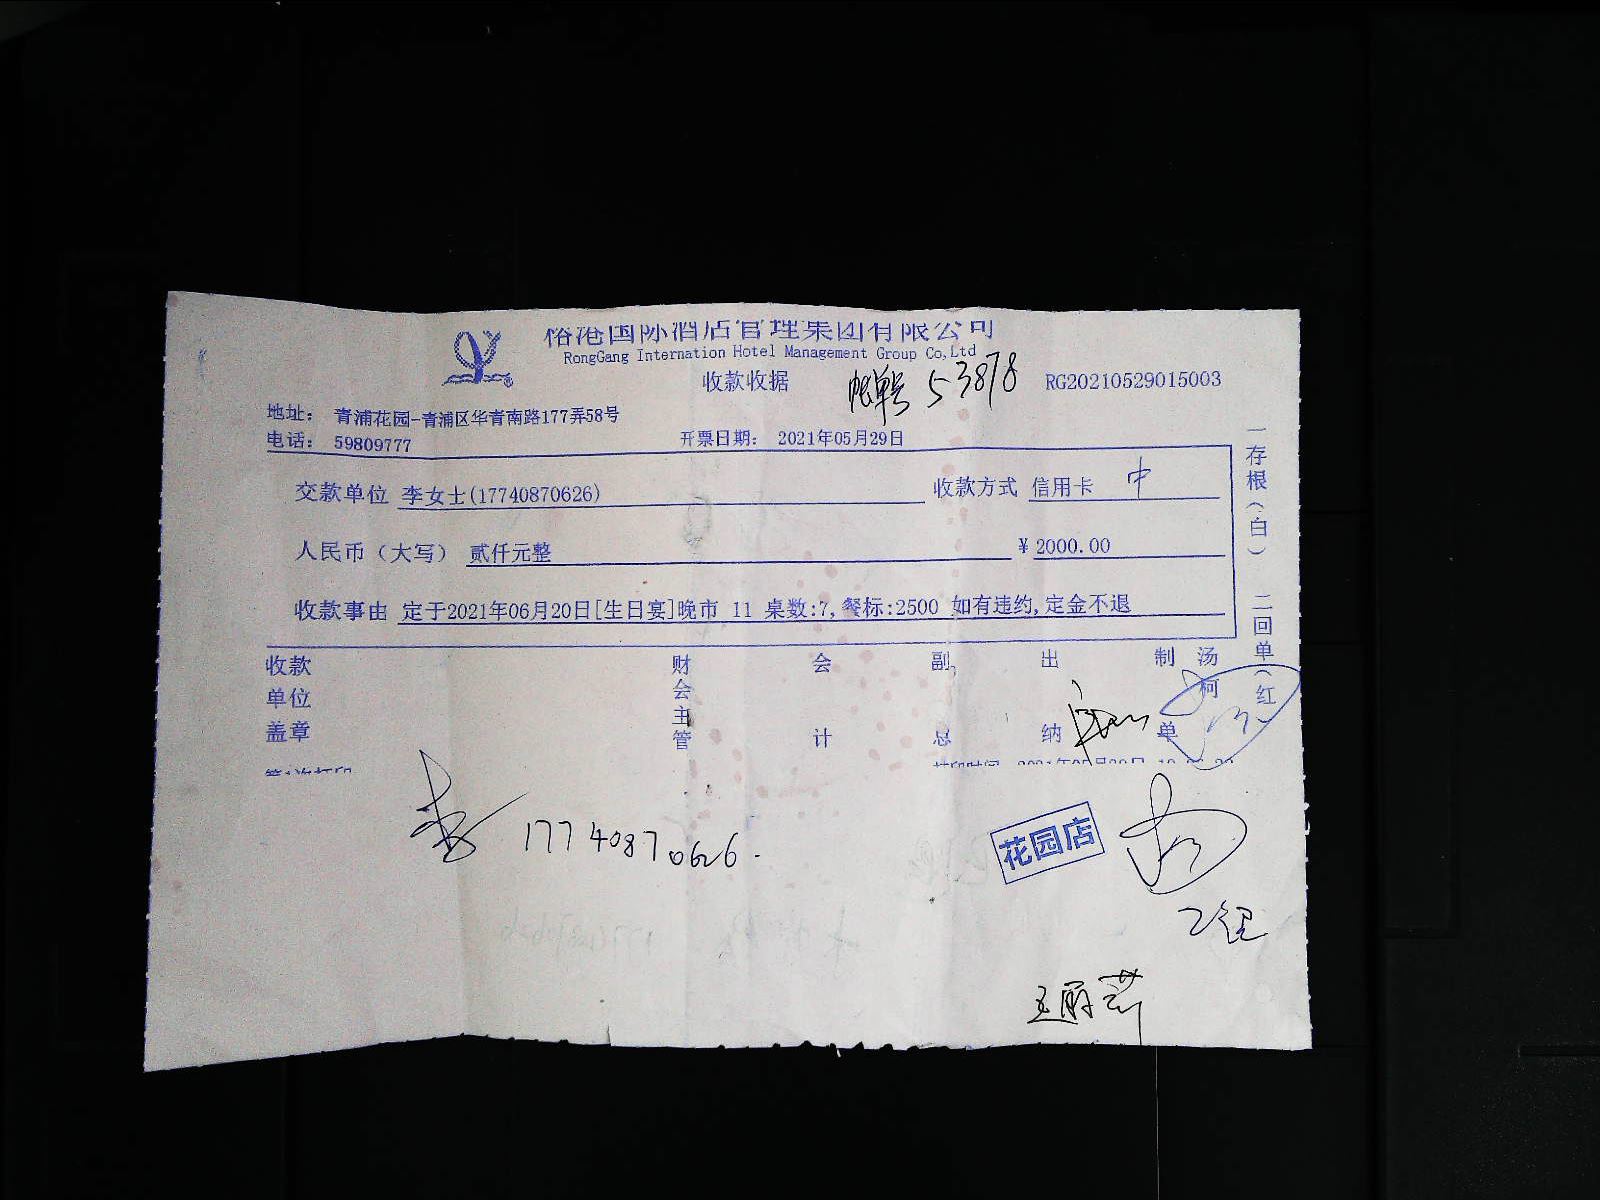 国际酒店管理集团有限公司
RongGang Internation Hotel Management Group Co,Ltd
收款收据
帐单号 53878
RG20210529015003
地址： 青浦花园-青浦区华青南路177弄58号
电话： 59809777
开票日期： 2021年05月29日
交款单位 李女士(17740870626)
收款方式 信用卡 中
人民币（大写） 贰仟元整 ¥2000.00
收款事由 定于2021年06月20日[生日宴]晚市 11 桌数:7,餐标:2500 如有违约,定金不退
一存根（白） 二回单（红
收款单位盖章
财会主管
会计
副总
出纳
制单
汤柯
李 17740870626.
花园店